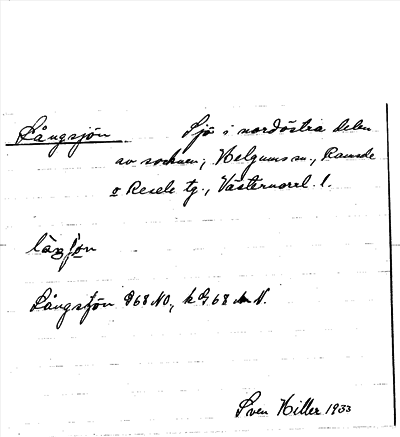 Långsjön Sjö i nordöstra delen
av socknen, Helgums sn., Ramsele
o Resele tg., Västernorrl. l.
låŋʃøn
Långsjön 968 NO, k G 68 N.
Sven Hiller 1933